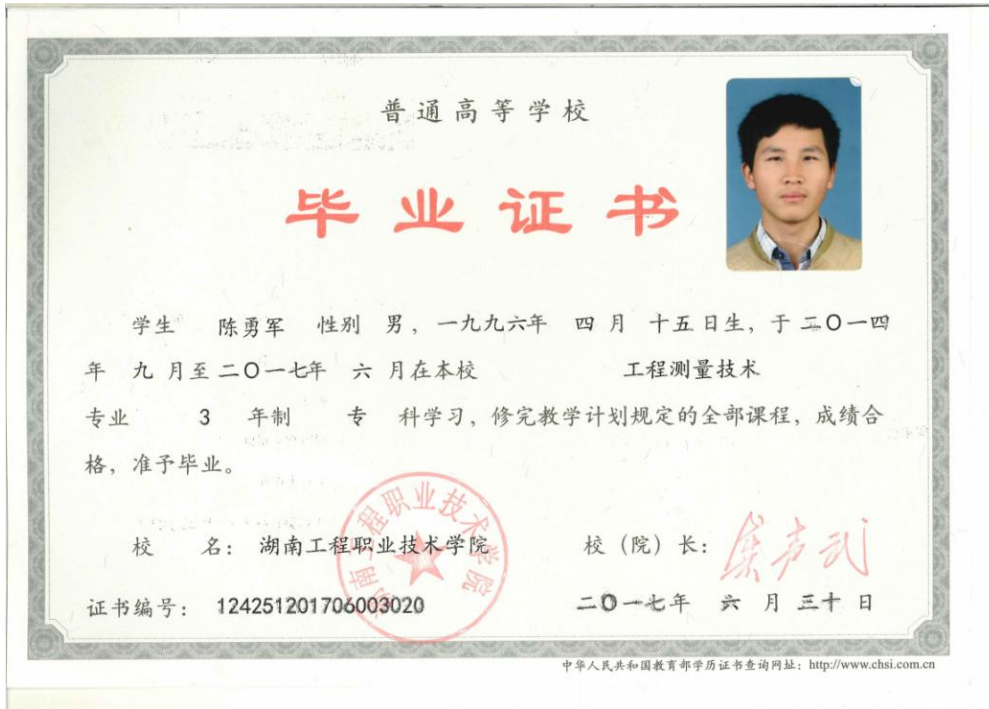 普通高等学校
毕业证书
学生 陈勇军 性别 男，一九九六年 四 月 十五日生，于 二〇一四
年 九 月至二〇一七年 六 月在本校 工程测量技术
专业 3 年制 专 科学习，修完教学计划规定的全部课程，成绩合
格，准予毕业。
校 名：湖南工程职业技术学院
校（院）长：
湖南工程职业技术学院
证书编号：124251201706003020
二〇一七年 六 月 三十 日
中华人民共和国教育部学历证书查询网址：http://www.chsi.com.cn